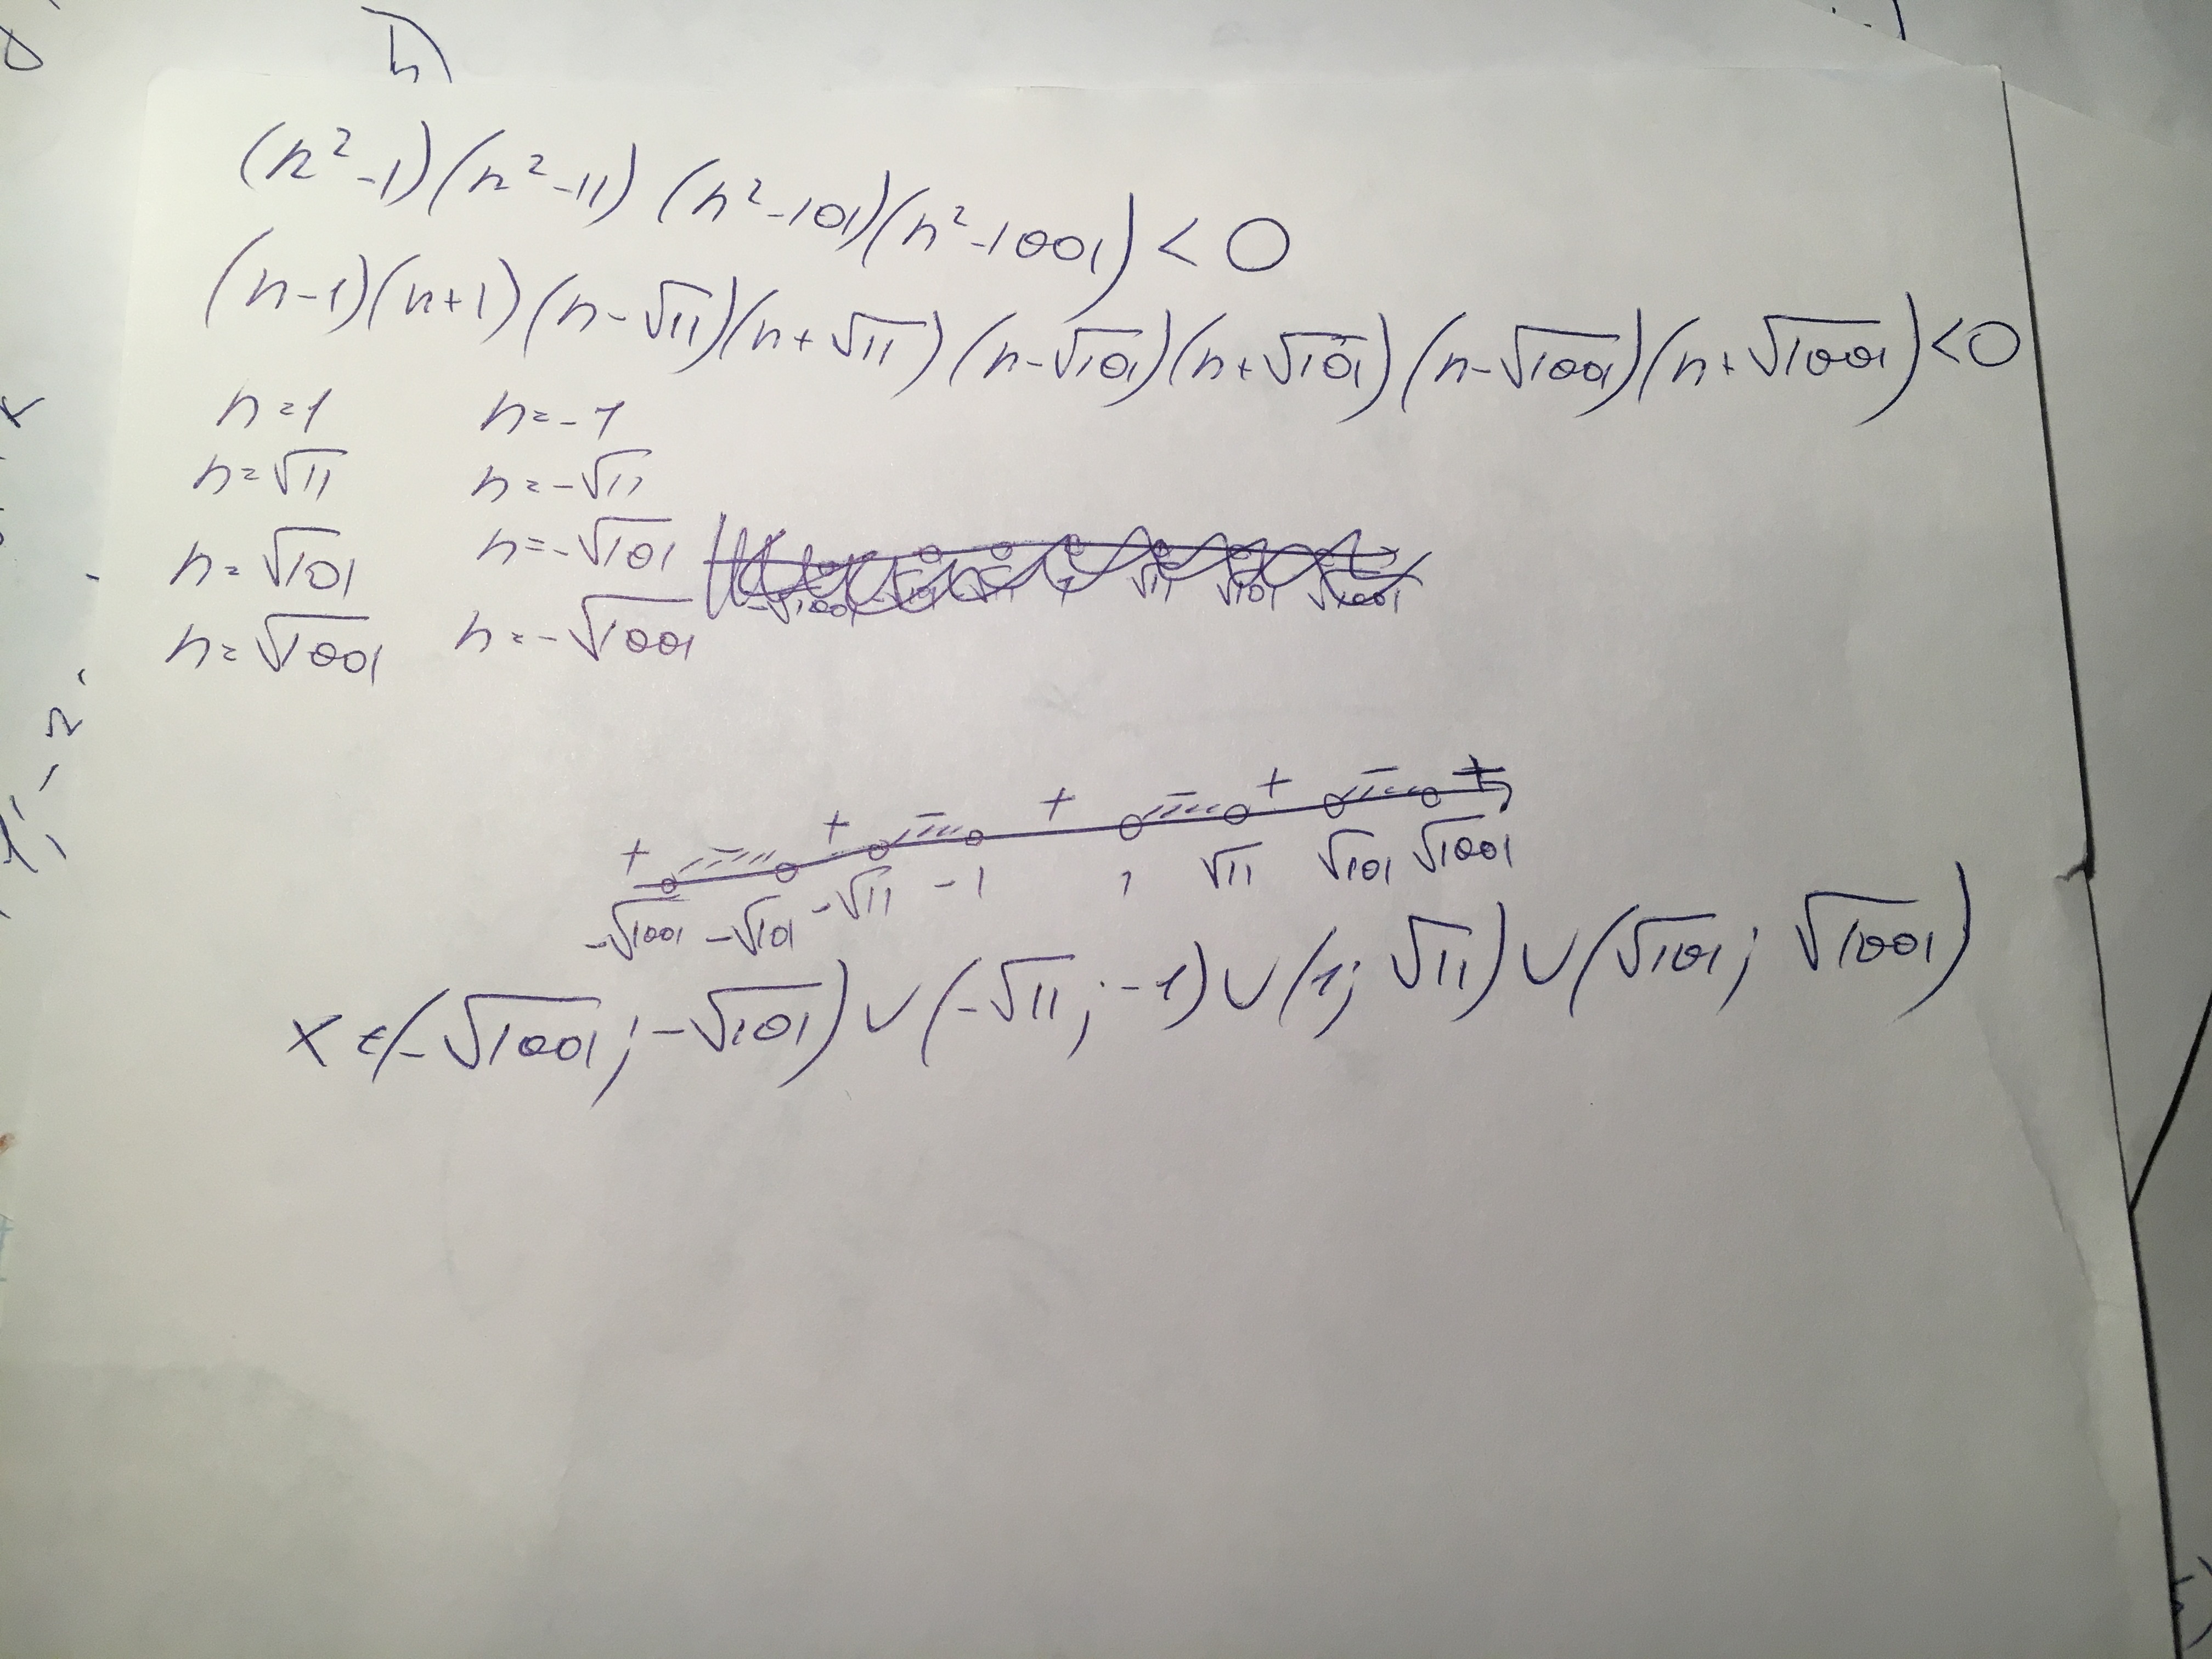 (n²-1)(n²-11)(n²-101)(n²-1001)<0
(n-1)(n+1)(n-√11)(n+√11)(n-√101)(n+√101)(n-√1001)(n+√1001)<0
n=1 n=-1
n=√11 n=-√11
n=√101 n=-√101
n=√1001 n=-√1001
+ - + - + - + - +
-√1001 -√101 -√11 -1 1 √11 √101 √1001
x∈(-√1001;-√101)∪(-√11;-1)∪(1;√11)∪(√101;√1001)